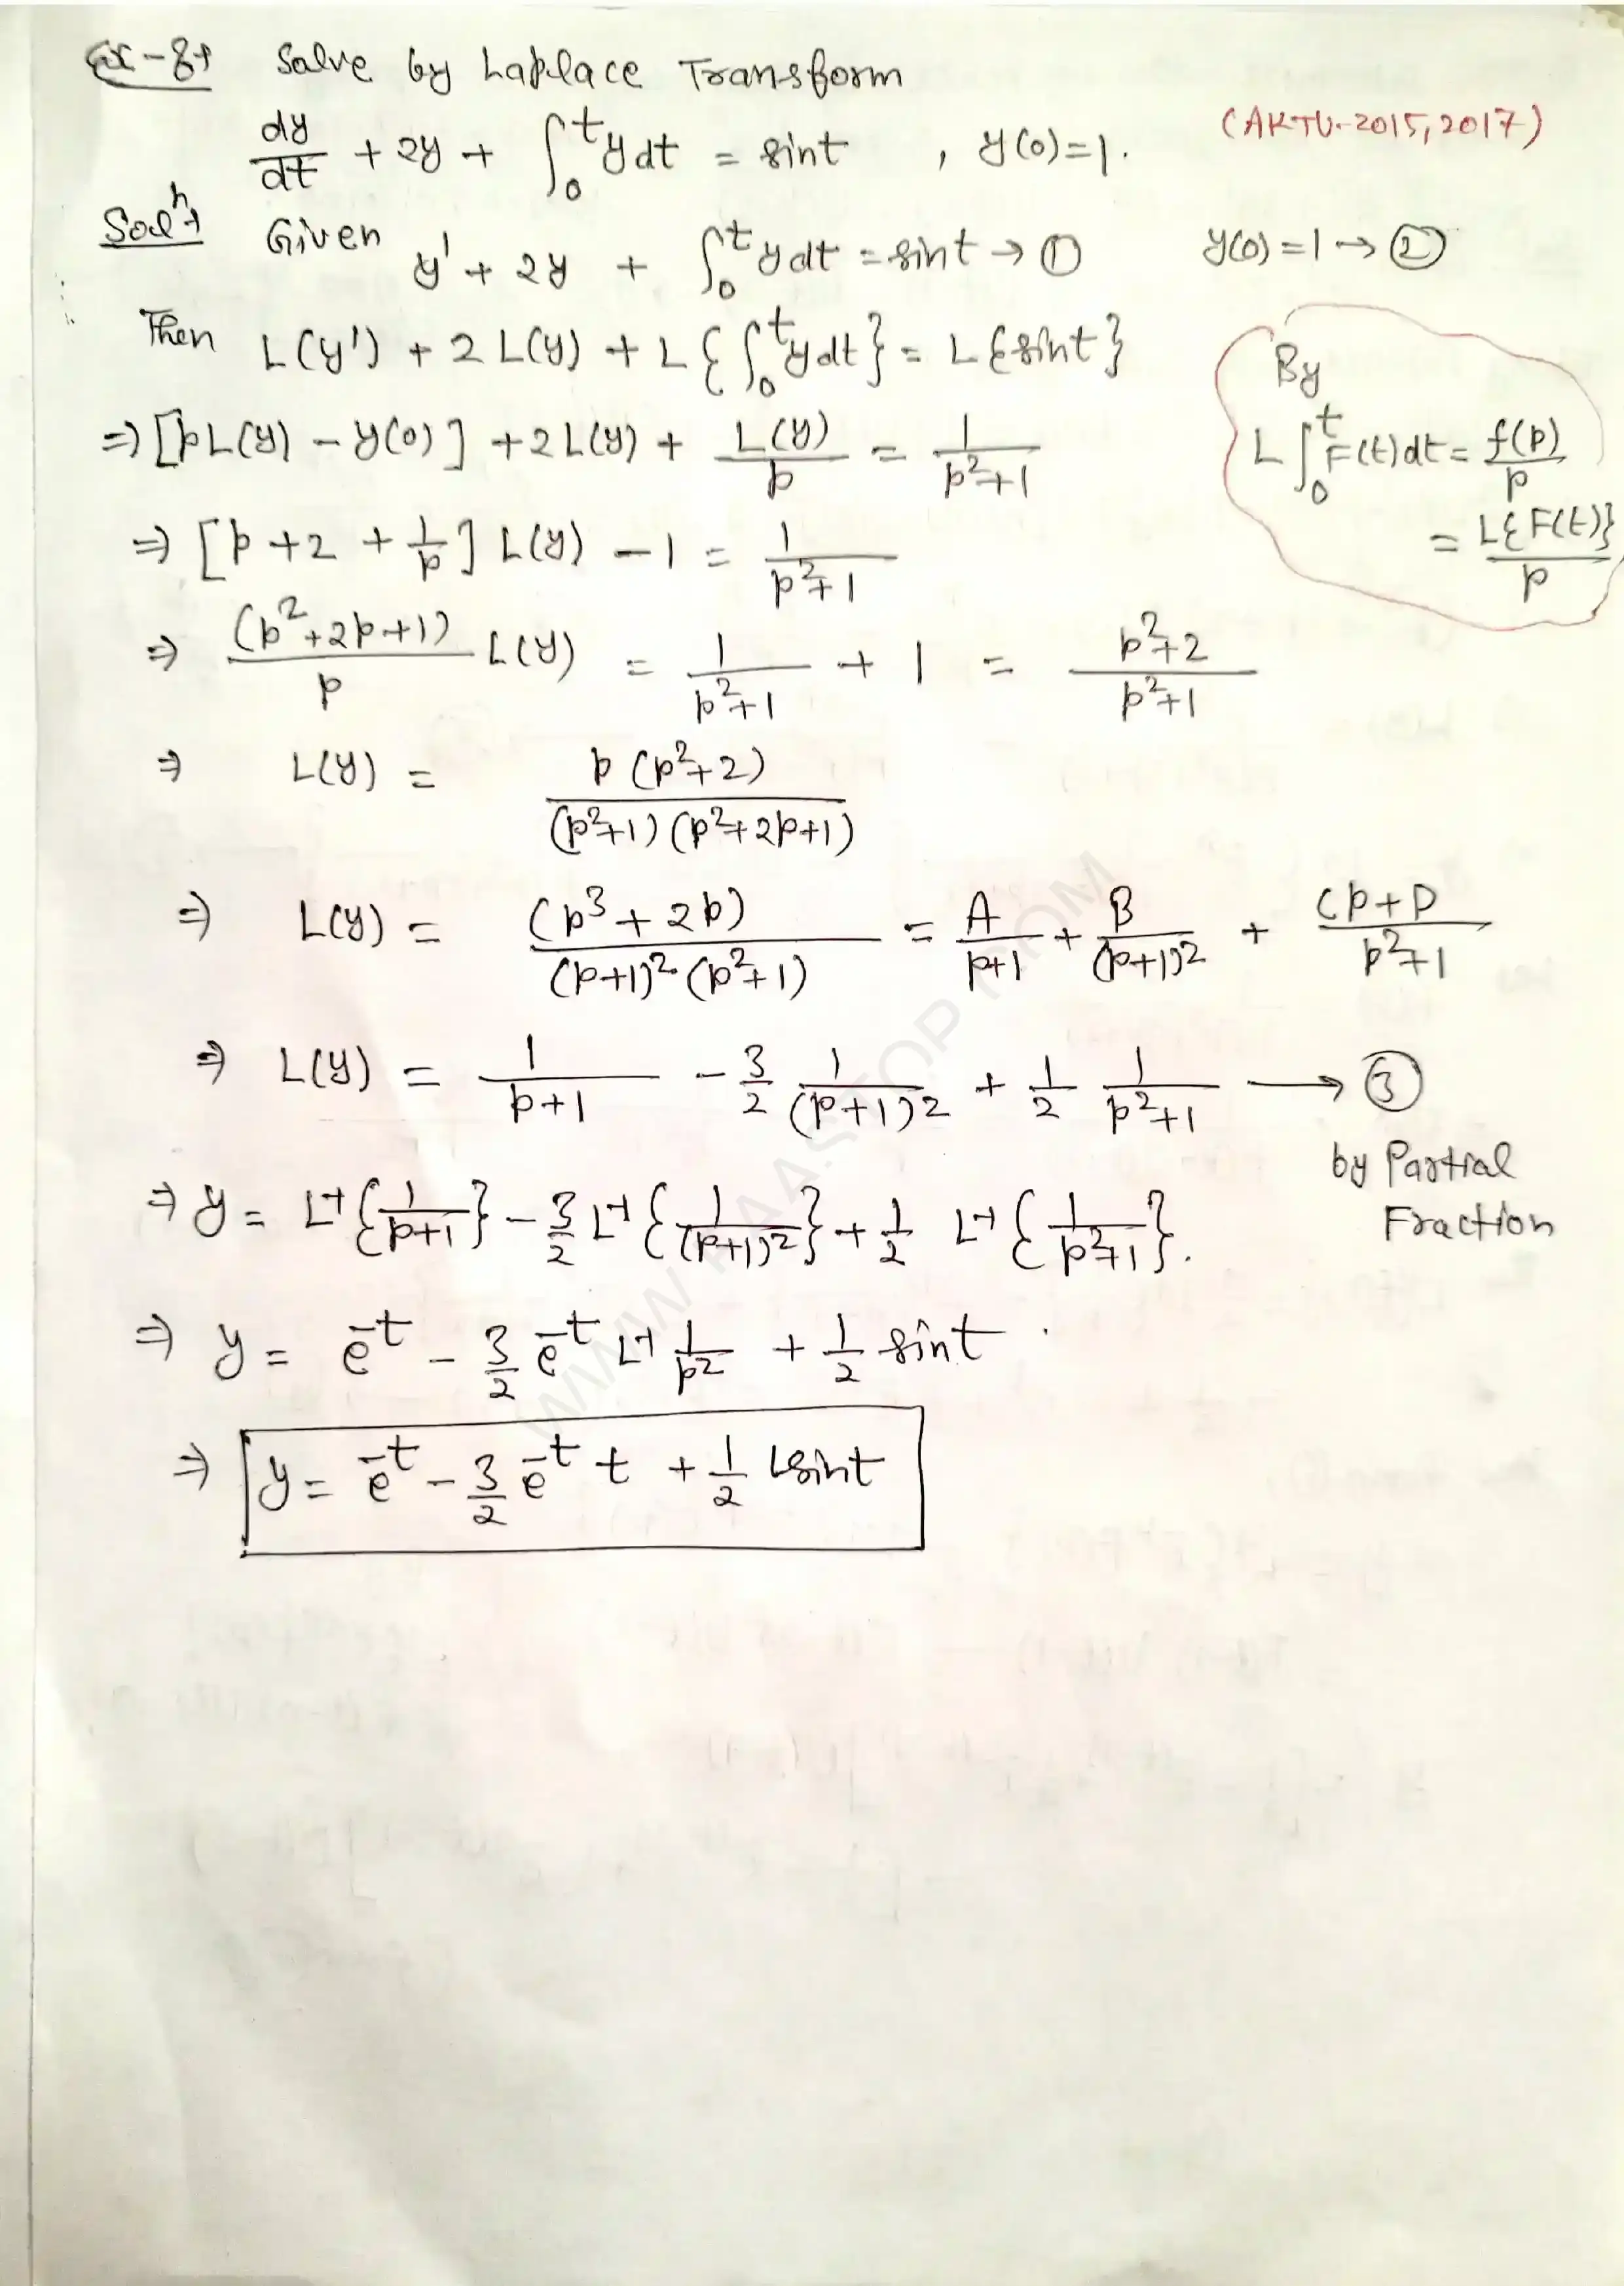 Ex-8→ Solve by Laplace Transform
dy/dt + 2y + ∫₀ᵗ y dt = sint , y(0)=1.
(AKTU-2015,2017)
Solⁿ→ Given y' + 2y + ∫₀ᵗ y dt = sint → ① y(0)=1 → ②
Then L(y') + 2L(y) + L{∫₀ᵗ y dt} = L{sint}
By
⇒ [pL(y) - y(0)] + 2L(y) + L(y)/p = 1/(p²+1)
L∫₀ᵗ F(t)dt = f(p)/p
= L{F(t)}/p
⇒ [p + 2 + 1/p] L(y) - 1 = 1/(p²+1)
⇒ (p²+2p+1)/p L(y) = 1/(p²+1) + 1 = (p²+2)/(p²+1)
⇒ L(y) = p(p²+2)/((p²+1)(p²+2p+1))
⇒ L(y) = (p³+2p)/((p+1)²(p²+1)) = A/(p+1) + B/(p+1)² + (Cp+D)/(p²+1)
⇒ L(y) = 1/(p+1) - 3/2 1/(p+1)² + 1/2 1/(p²+1) → ③
by Partial
Fraction
⇒ y = L⁻¹{1/(p+1)} - 3/2 L⁻¹{1/(p+1)²} + 1/2 L⁻¹{1/(p²+1)}.
⇒ y = e⁻ᵗ - 3/2 e⁻ᵗ L⁻¹ 1/p² + 1/2 sint
⇒ y = e⁻ᵗ - 3/2 e⁻ᵗ t + 1/2 sint